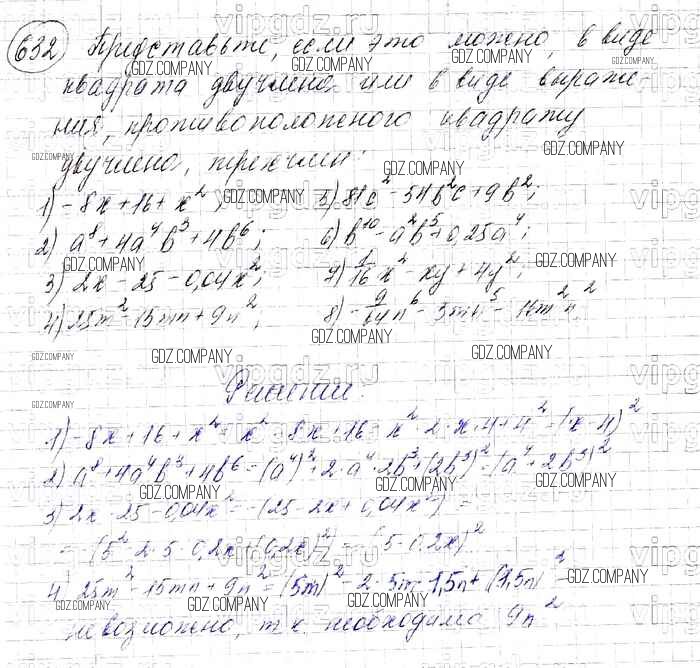 632 Представьте, если это можно, в виде
квадрата двучлена или в виде выраже-
ния, противоположного квадрату
двучлена, трехчлен:
1) -8x+16+x²; 5) 81c²-54b²c+9b²;
2) a⁸+4a⁴b³+4b⁶; 6) b¹⁰-a²b⁵+0,25a⁴;
3) 2x-25-0,04x²; 7) 1/16x²-xy+4y²;
4) 25m²-15mn+9n²; 8) -9/64n⁶-3mn⁵-16m²n²
Решение.
1) -8x+16+x²=x²-8x+16=x²-2·x·4+4²=(x-4)²
2) a⁸+4a⁴b³+4b⁶=(a⁴)²+2·a⁴·2b³+(2b³)²=(a⁴+2b³)²
3) 2x-25-0,04x²=-(25-2x+0,04x²)=
=-(5²-2·5·0,2x+(0,2x)²)=-(5-0,2x)²
4) 25m²-15mn+9n²=(5m)²-2·5m·1,5n+(1,5n)²
невозможно, т.к. необходимо 9n²